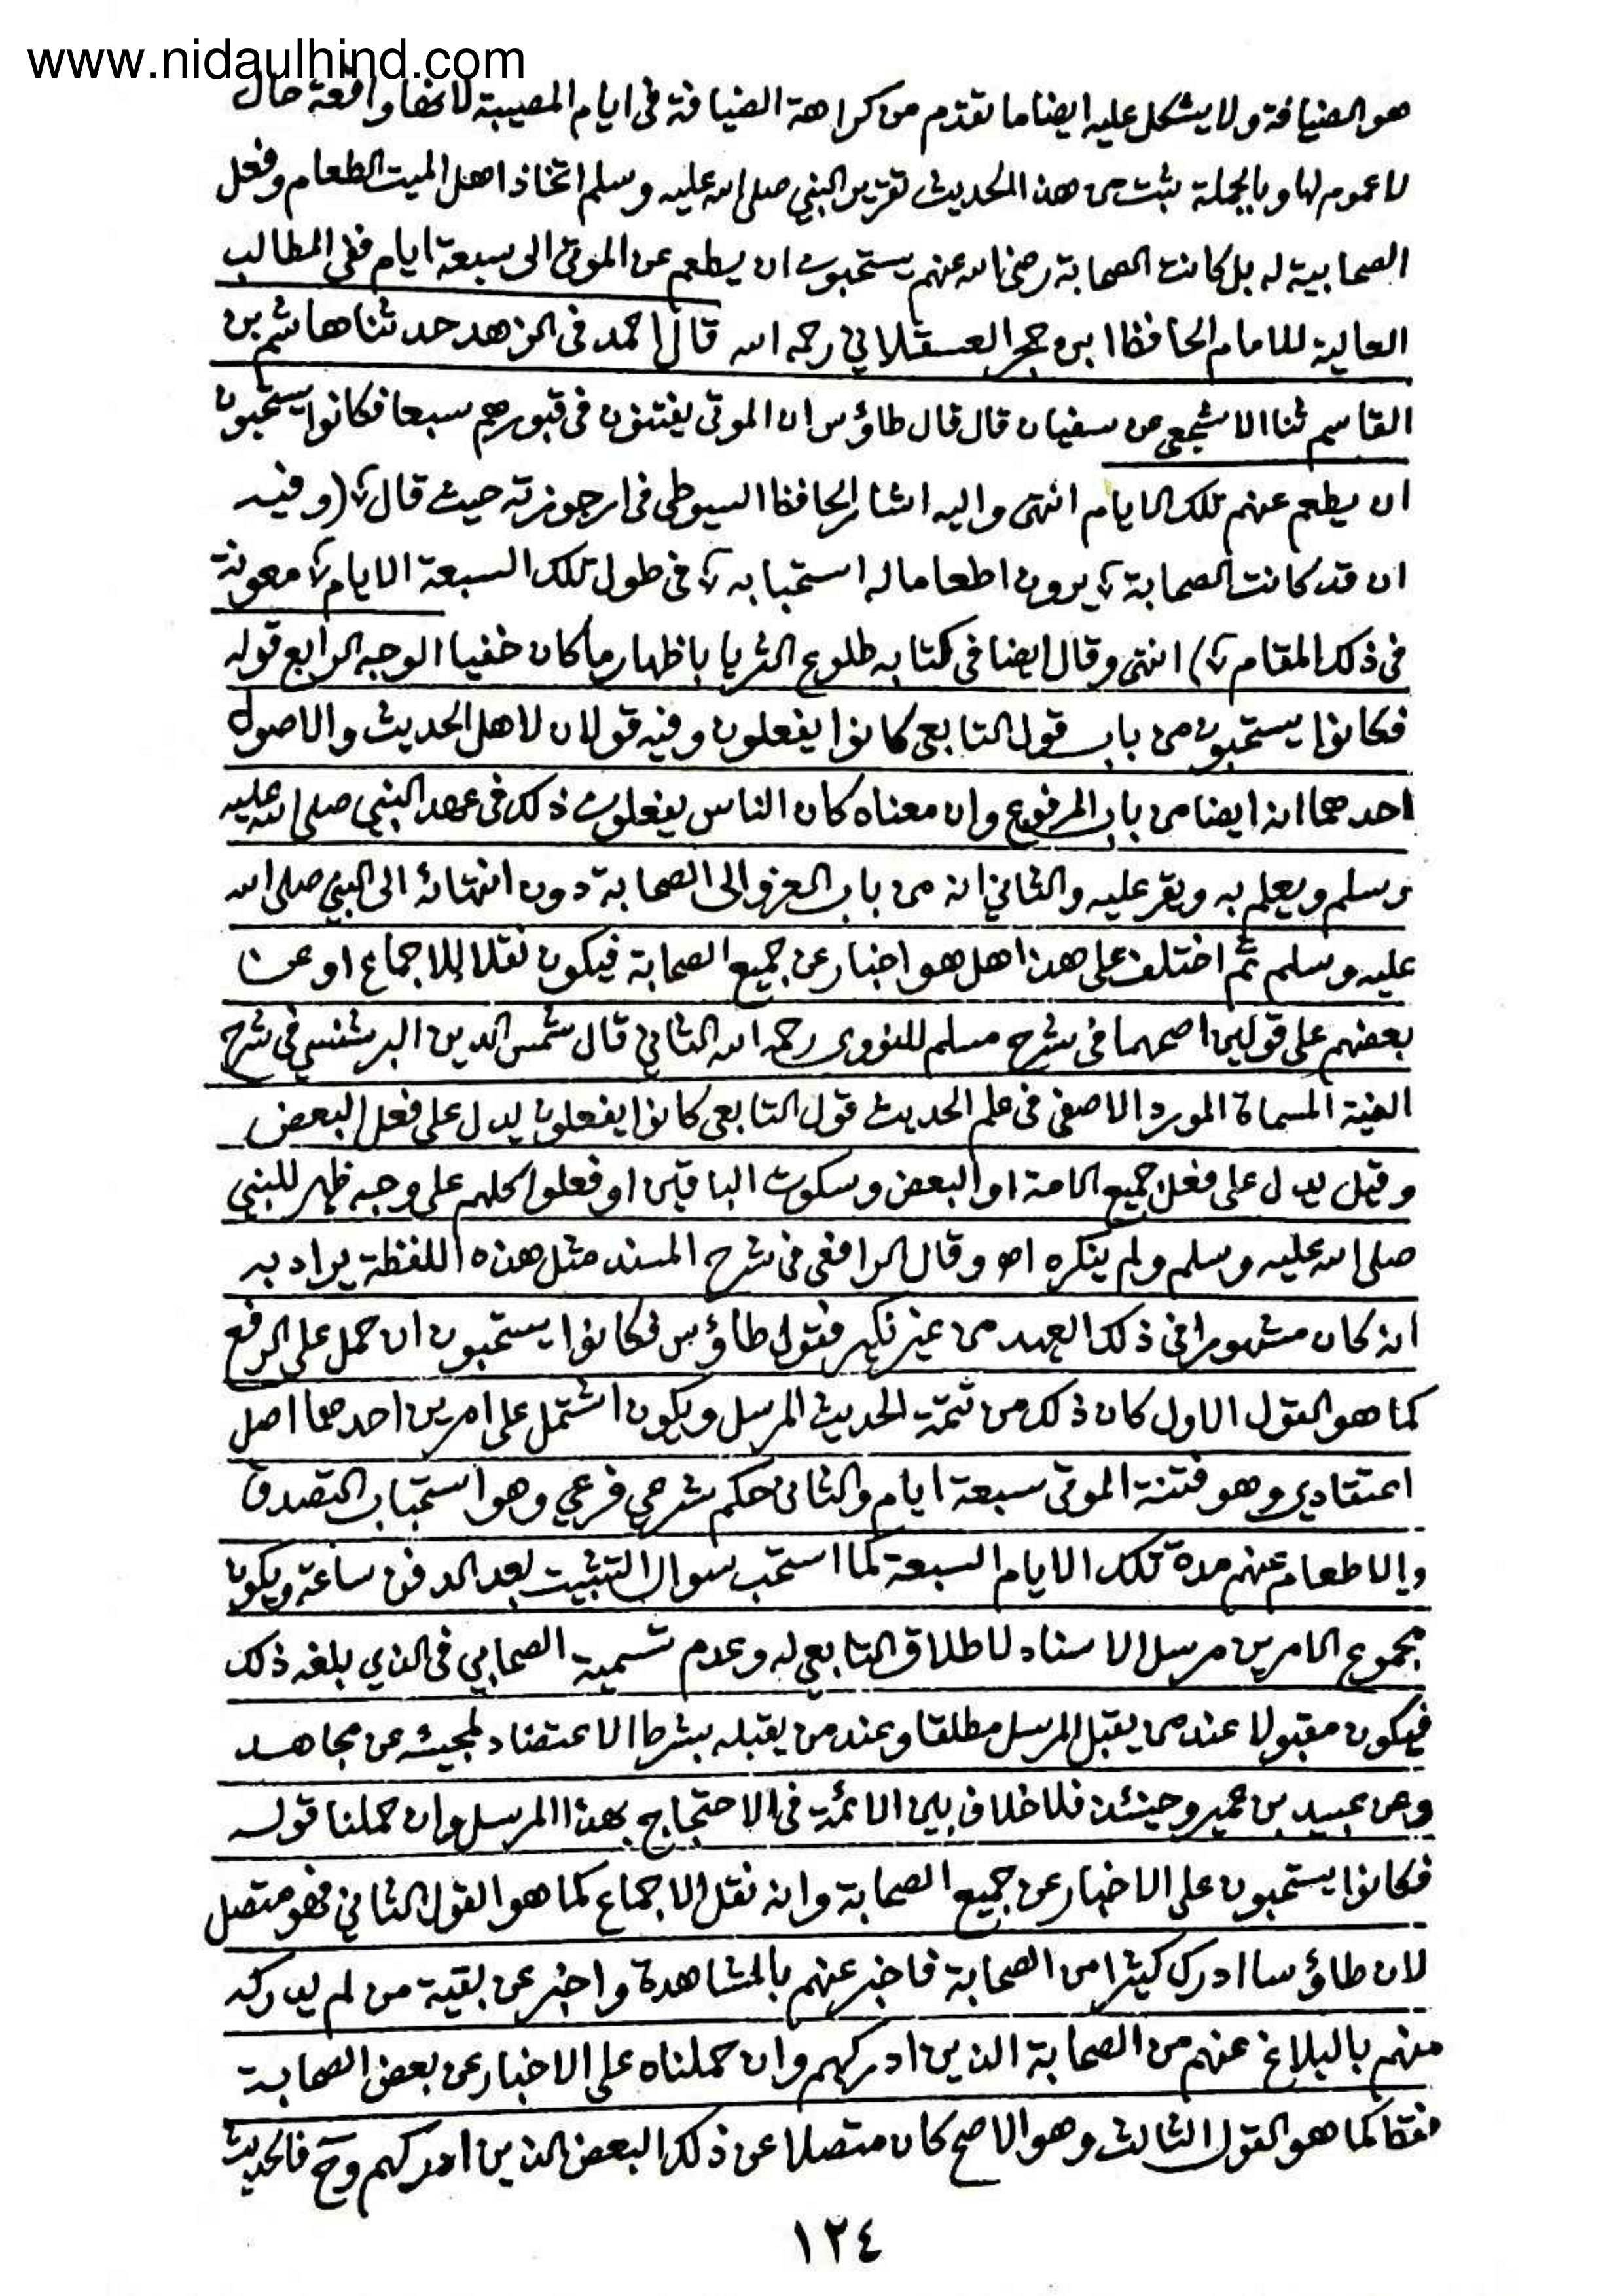 www.nidaulhind.com
هو الضيافة ولا يشكل عليه ايضا ما تقدم من كراهة الضيافة فى ايام المصيبة لانها واقعة حال
لا عموم لها وبالجملة يثبت من هذا الحديث تقرير النبي صلى الله عليه وسلم اتخاذ اهل الميت الطعام وفعل
الصحابية له بل كانت الصحابة رضى الله عنهم يستحبون ان يطعم عن الموتى الى سبعة ايام ففى المطالب
العالية للامام الحافظ ابن حجر العسقلاني رحمه الله قال احمد فى الزهد حدثنا هاشم بن
القاسم ثنا الاشجعى عن سفيان قال قال طاؤس ان الموتى يفتنون فى قبورهم سبعا فكانوا يستحبون
ان يطعم عنهم تلك الايام انتهى واليه اشار الحافظ السيوطى فى ارجوزته حيث قال ؎ (وفيه
ان قد كانت الصحابة ؎ يرون اطعاما له استحبابه ؎ فى طول تلك السبعة الايام ؎ معونة
فى ذلك المقام ؎) انتهى وقال ايضا فى كتابه طلوع الثريا باظهار ما كان خفيا الوجه الرابع قوله
فكانوا يستحبون من باب قول التابعى كانوا يفعلون وفيه قولان لاهل الحديث والاصول
احدهما انه ايضا من باب المرفوع وان معناه كان الناس يفعلون ذلك فى عهد النبي صلى الله عليه
وسلم ويعلم به ويقر عليه والثاني انه من باب العزو الى الصحابة دون انتهائه الى النبي صلى الله
عليه وسلم ثم اختلف على هذا هل هو اخبار عن جميع الصحابة فيكون نقلا للاجماع او عن
بعضهم على قولين اصحهما فى شرح مسلم للنووى رحمه الله الثاني قال شمس الدين البرشنسي فى شرح
الفية المسماة المورد الاصفى فى علم الحديث قول التابعى كانوا يفعلون يدل على فعل البعض
وقيل يدل على فعل جميع الامة او البعض وسكوت الباقين او فعلوا كلهم على وجه ظهر للنبي
صلى الله عليه وسلم ولم ينكره اھ وقال الرافعى فى شرح المسند مثل هذه اللفظة يراد به
انه كان مشهورا فى ذلك العهد من غير نكير فقول طاؤس فكانوا يستحبون ان حمل على الرفع
كما هو القول الاول كان ذلك من تتمة الحديث المرسل ويكون اشتمل على امرين احدهما اصل
اعتقادي وهو فتنة الموتى سبعة ايام والثانى حكم شرعي فرعي وهو استحباب التصدق
والاطعام عنهم مدة تلك الايام السبعة كما استحب سوال التثبيت بعد الدفن ساعة ويكون
مجموع الامرين مرسل الاسناد لاطلاق التابعى له وعدم تسمية الصحابي فى الذي بلغه ذلك
فيكون مقبولا عند من يقبل المرسل مطلقا وعند من يقبله بشرط الاعتضاد لمجيئه عن مجاهد
وعن عبيد بن عمير وحينئذ فلا خلاف بين الائمة فى الاحتجاج بهذا المرسل وان حملنا قوله
فكانوا يستحبون على الاخبار عن جميع الصحابة وانه نقل الاجماع كما هو القول الثاني فهو متصل
لان طاؤسا ادرك كثيرا من الصحابة فاخبر عنهم بالمشاهدة واخبر عن بقية من لم يدركه
منهم بالبلاغ عنهم من الصحابة الذين ادركهم وان حملناه على الاخبار عن بعض الصحابة
فقط كما هو القول الثالث وهو الاصح كان متصلا عن ذلك البعض الذين ادركهم وح فالحديث
١٢٤